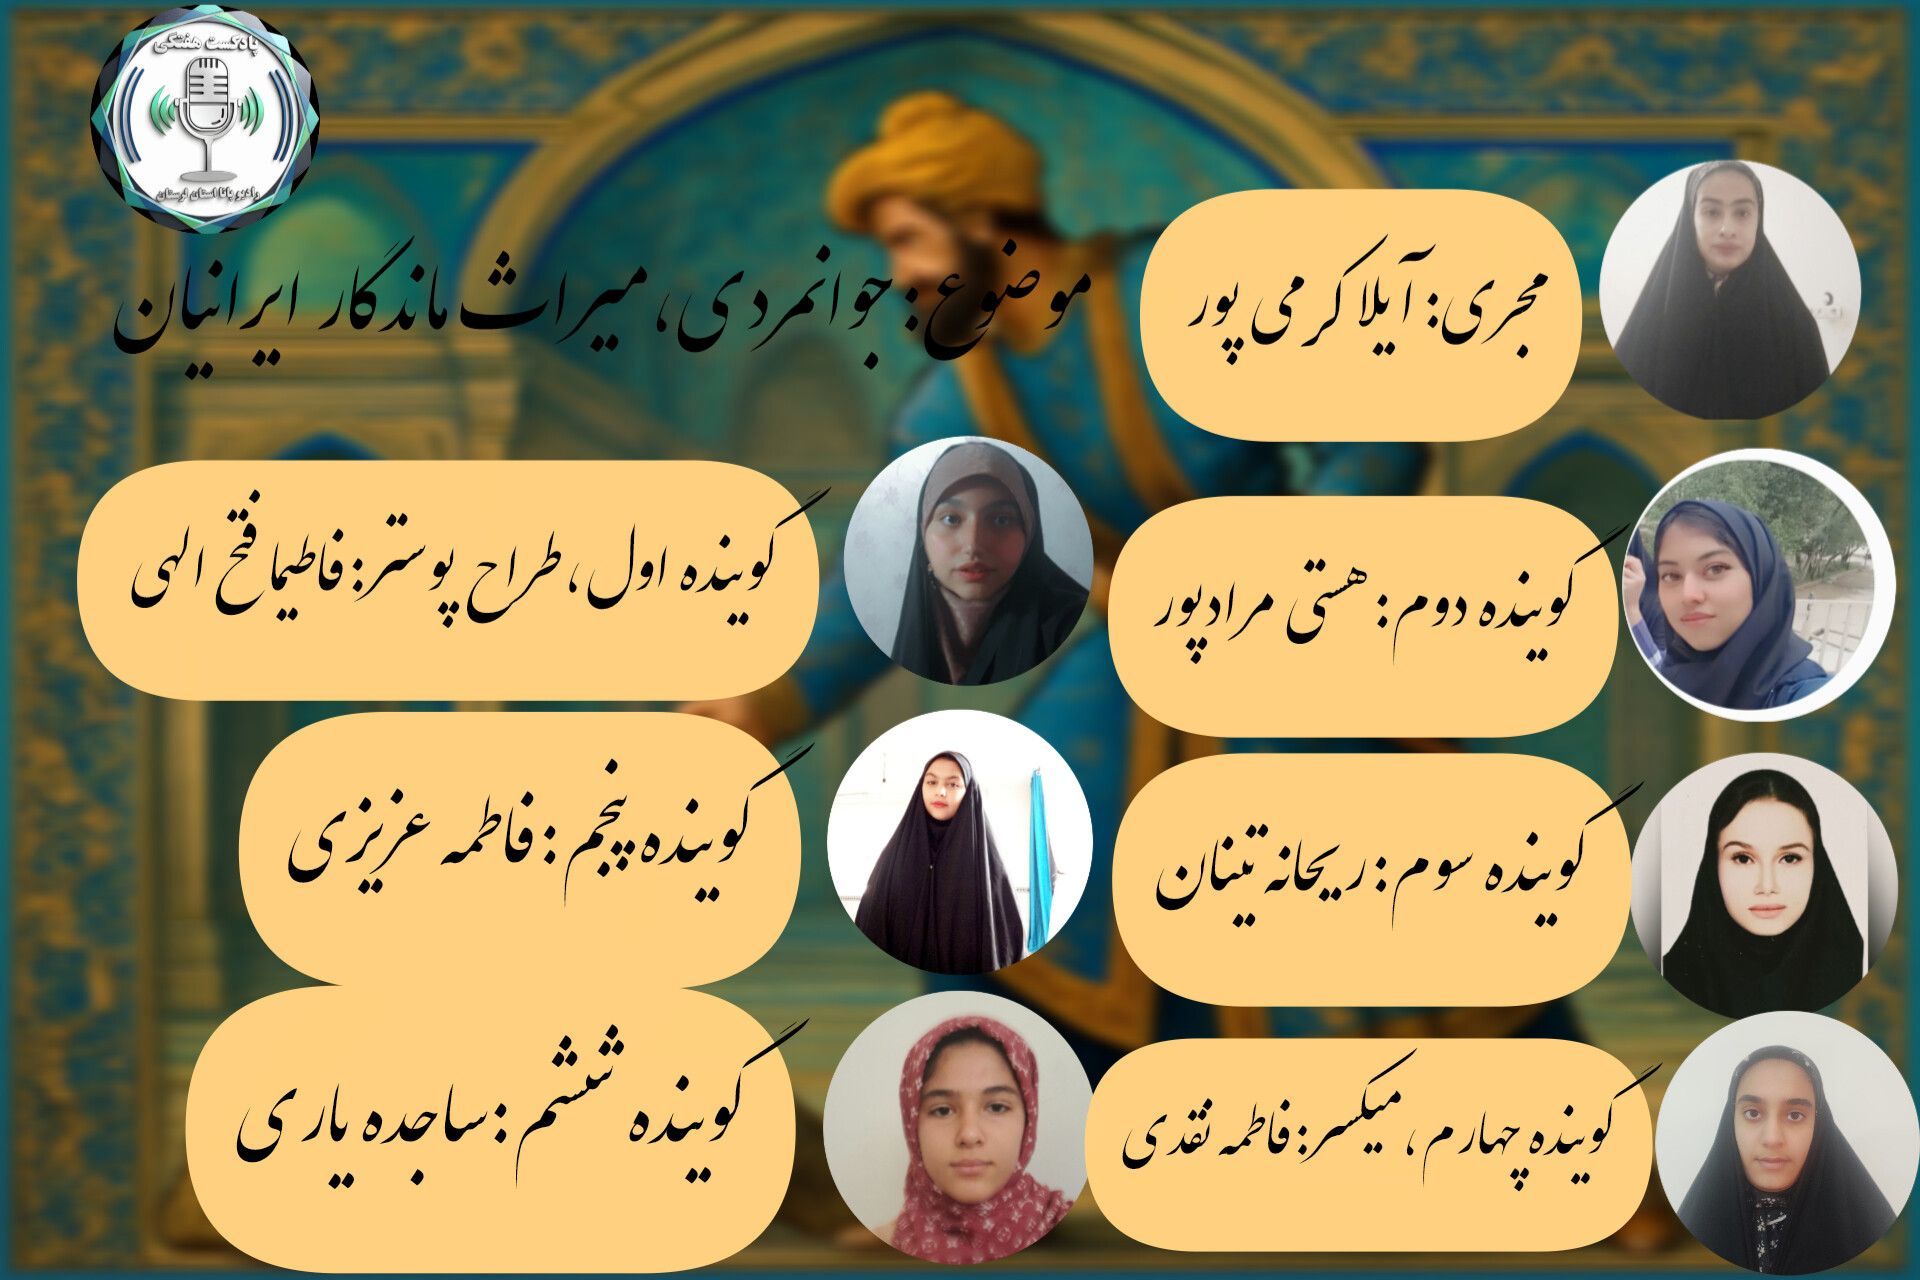 پادکست هفتگی
رادیو پانا استان لرستان
موضوع: جوانمردی، میراث ماندگار ایرانیان
مجری: آیلا کرمی پور
گوینده اول، طراح پوستر: فاطیما فتح الهی
گوینده دوم: هستی مرادپور
گوینده سوم: ریحانه تینان
گوینده چهارم، میکسر: فاطمه نقدی
گوینده پنجم: فاطمه عزیزی
گوینده ششم: ساجده یاری